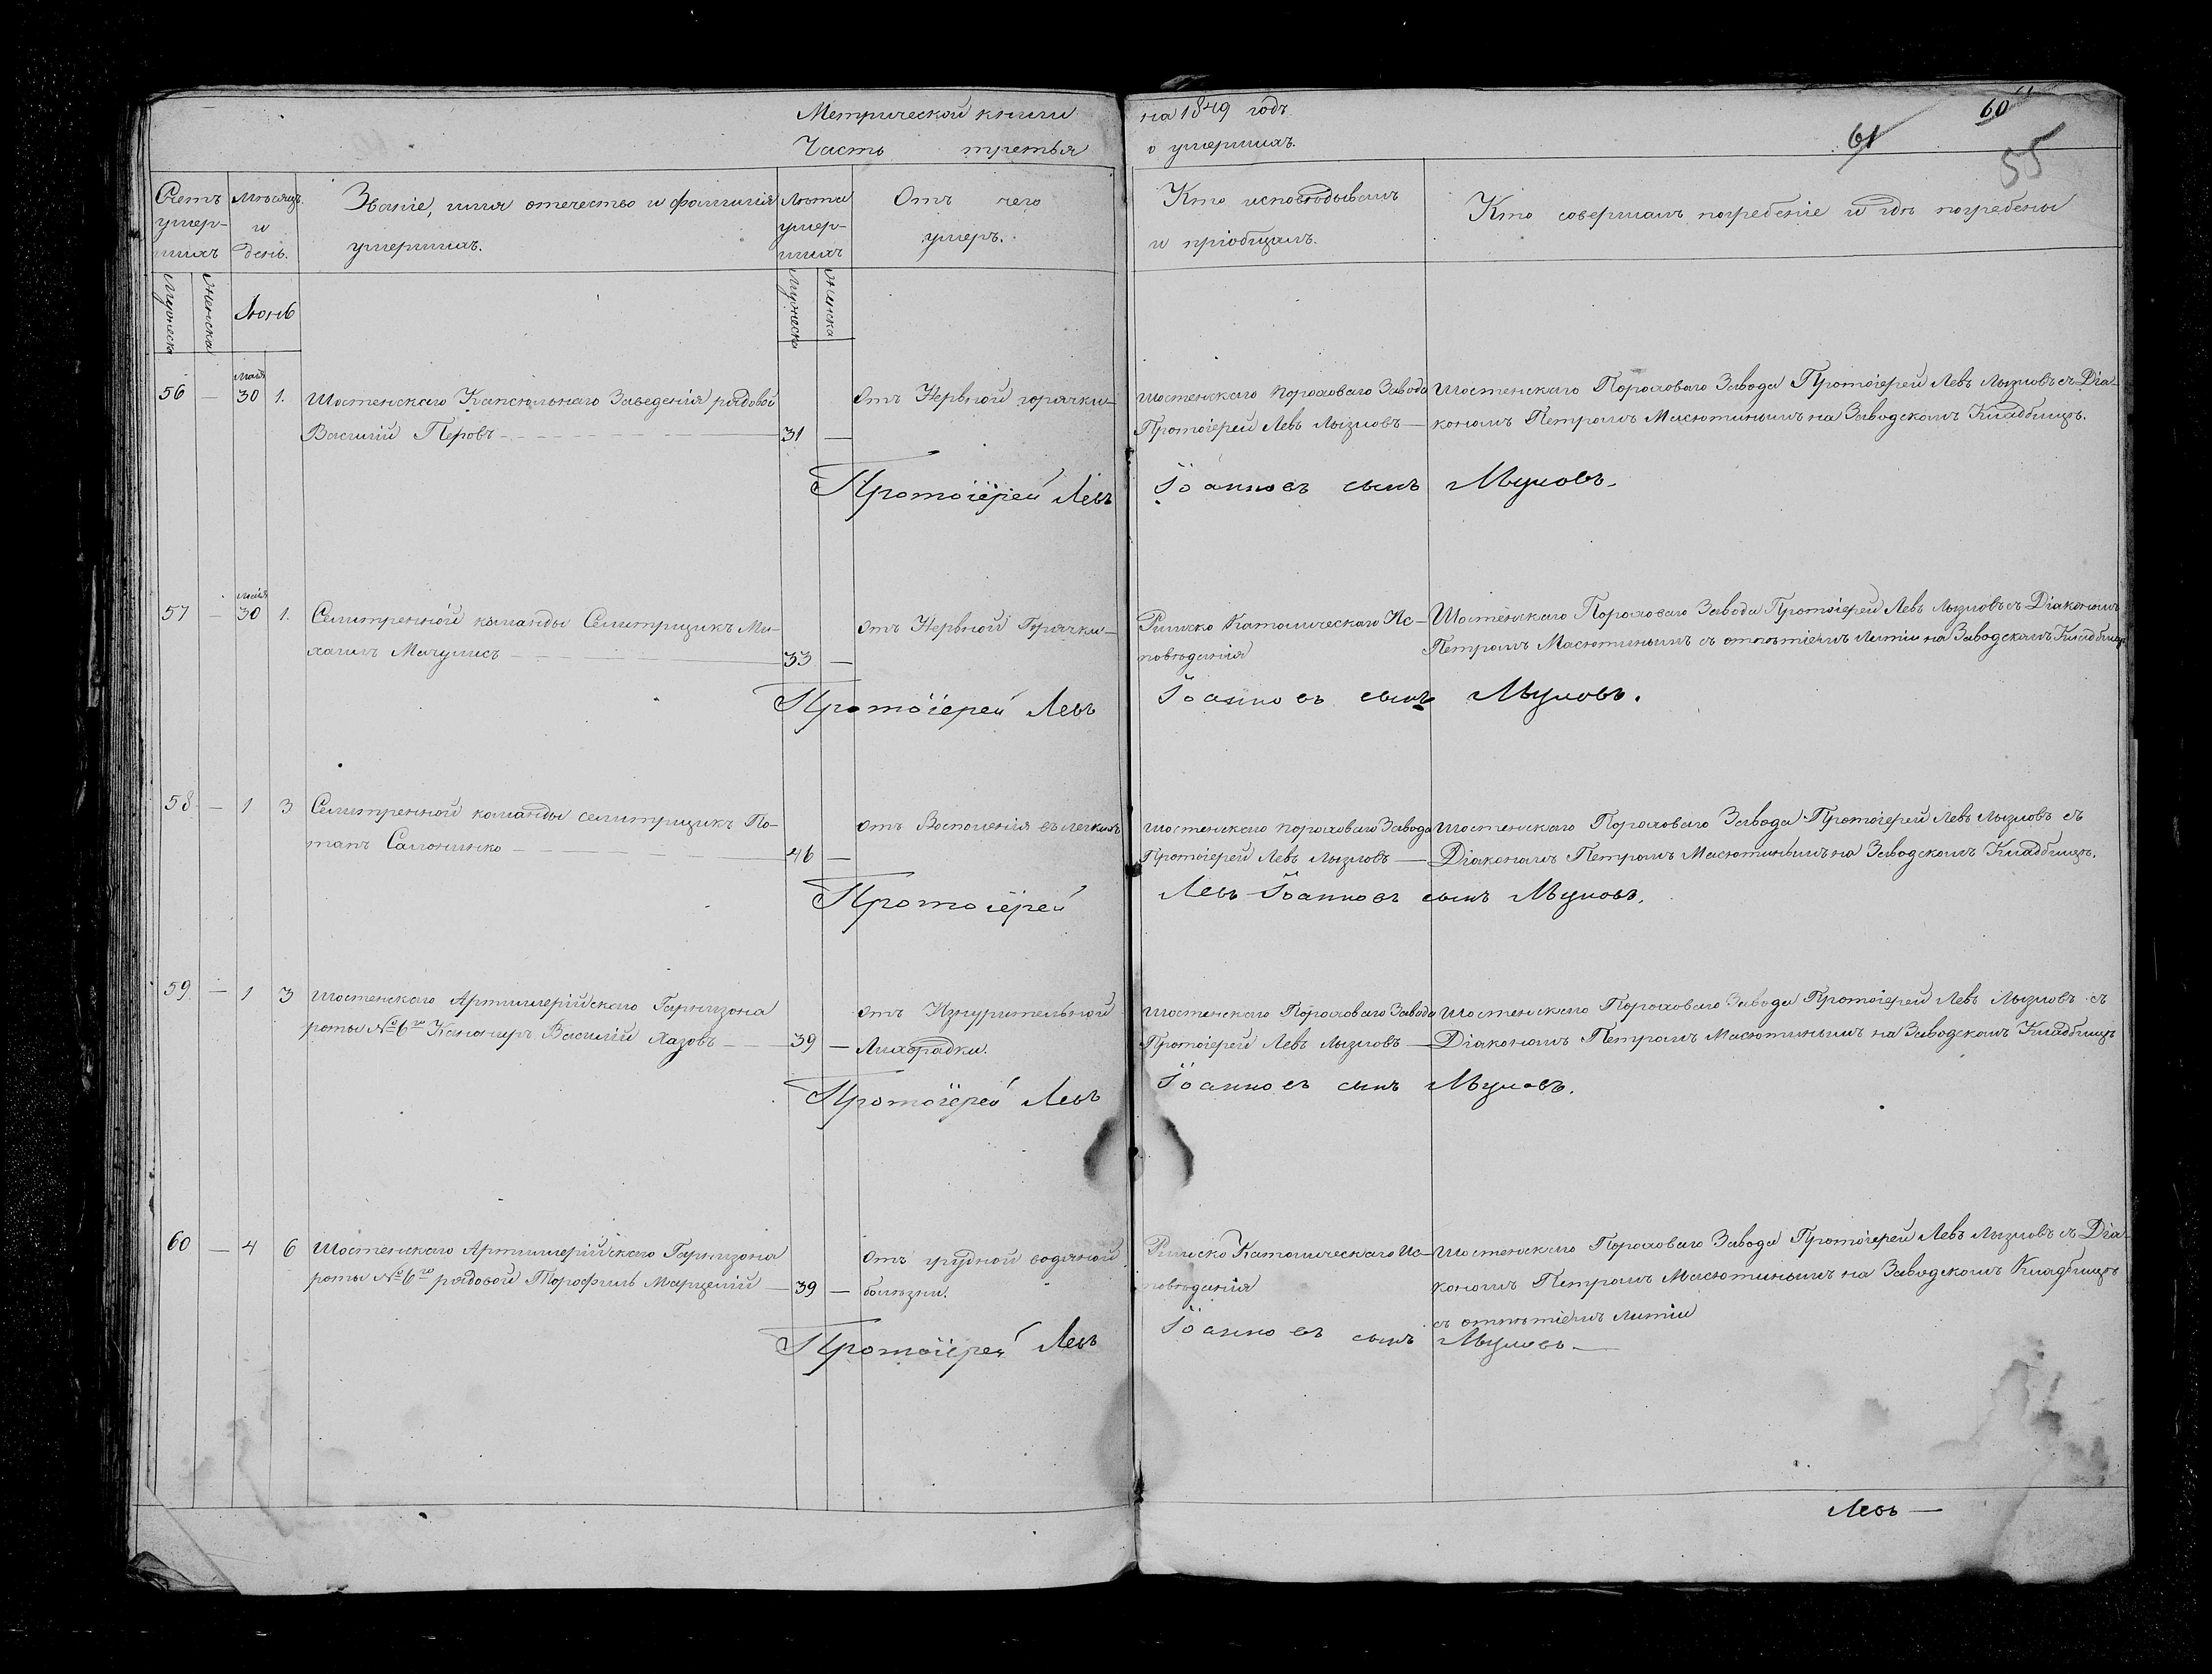 Метрической книги на 1849 годъ
Часть третья о умершихъ.
60
61
55
Счетъ умер-
шихъ
Мѣсяцъ
и
день.
Званіе, имя отечество и фамилія
умершихъ.
Лѣта
умер-
шихъ
Отъ чего
умеръ.
Кто исповѣдывалъ
и пріобщалъ.
Кто совершалъ погребеніе и гдѣ погребены
Мужеска
Женска
Іюнь
Мужеска
Женска
Маія
56 — 30 1. Шостенскаго Капсюльнаго Заведенія рядовой
Василій Перовъ — 31 —
Отъ Нервной горячки —
Шостенскаго Пороховаго Завода
Протоіерей Левъ Лызловъ —
Шостенскаго Пороховаго Завода Протоіерей Левъ Лызловъ съ Діа-
кономъ Петромъ Масютинымъ на Заводскомъ Кладбищѣ.
Протоіерей Левъ Іоанновъ сынъ Лызловъ.
Маія
57 — 30 1. Селитренной команды Селитрщикъ Ми-
хаилъ Мачулисъ — 33 —
Отъ Нервной Горячки —
Римско Католическаго Ис-
повѣданія
Шостенскаго Пороховаго Завода Протоіерей Левъ Лызловъ съ Діакономъ
Петромъ Масютинымъ съ отпѣтіемъ литіи на Заводскомъ Кладбищѣ
Протоіерей Левъ Іоанновъ сынъ Лызловъ.
58 — 1 3 Селитренной команды селитрщикъ По-
тапъ Самоненко — 46 —
отъ Воспаленія въ легкихъ
Шостенскаго пороховаго Завода
Протоіерей Левъ Лызловъ —
Шостенскаго Пороховаго Завода Протоіерей Левъ Лызловъ съ
Діакономъ Петромъ Масютинымъ на Заводскомъ Кладбищѣ.
Протоіерей Левъ Іоанновъ сынъ Лызловъ.
59 — 1 3 Шостенскаго Артиллерійскаго Гарнизона
роты № 6го Канониръ Василій Хазовъ — 39 —
отъ Изнурительной
Лихорадки.
Шостенскаго Пороховаго Завода
Протоіерей Левъ Лызловъ —
Шостенскаго Пороховаго Завода Протоіерей Левъ Лызловъ съ
Діакономъ Петромъ Масютинымъ на Заводскомъ Кладбищѣ
Протоіерей Левъ Іоанновъ сынъ Лызловъ.
60 — 4 6 Шостенскаго Артиллерійскаго Гарнизона
роты № 6го рядовой Торофиль Марцелій — 39 —
Отъ грудной водяной
болѣзни.
Римско Католическаго Ис-
повѣданія
Шостенскаго Пороховаго Завода Протоіерей Левъ Лызловъ съ Діа-
кономъ Петромъ Масютинымъ на Заводскомъ Кладбищѣ
съ отпѣтіемъ литіи
Протоіерей Левъ Іоанновъ сынъ Лызловъ —
Левъ —